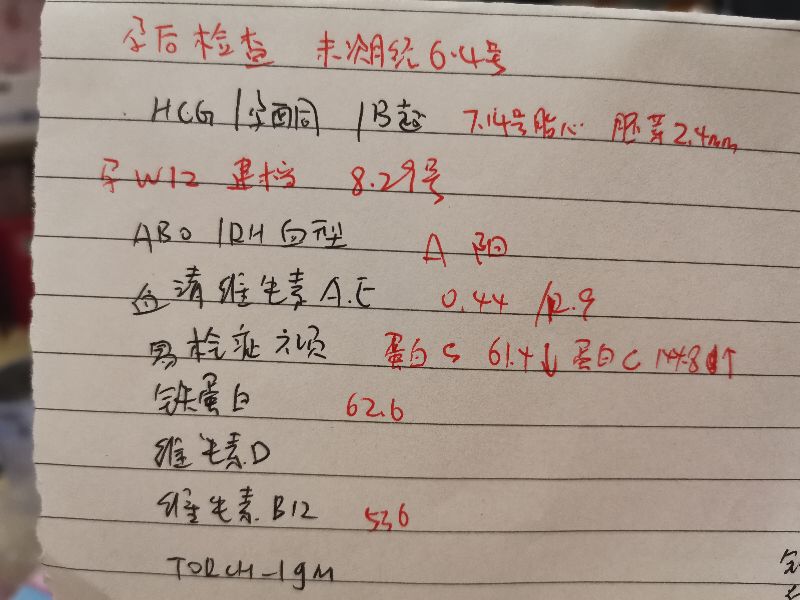 孕后检查 末次月经 6.4号
HCG/孕酮 /B超 7.14号 胎心 胚芽2.4mm
孕W12 建档 8.29号
ABO/RH血型 A 阳
血清维生素A.E 0.44 /12.9
易栓症六项 蛋白S 61.4↓ 蛋白C 148↑
铁蛋白 62.6
维生素D
维生素B12 536
TORCH-IgM